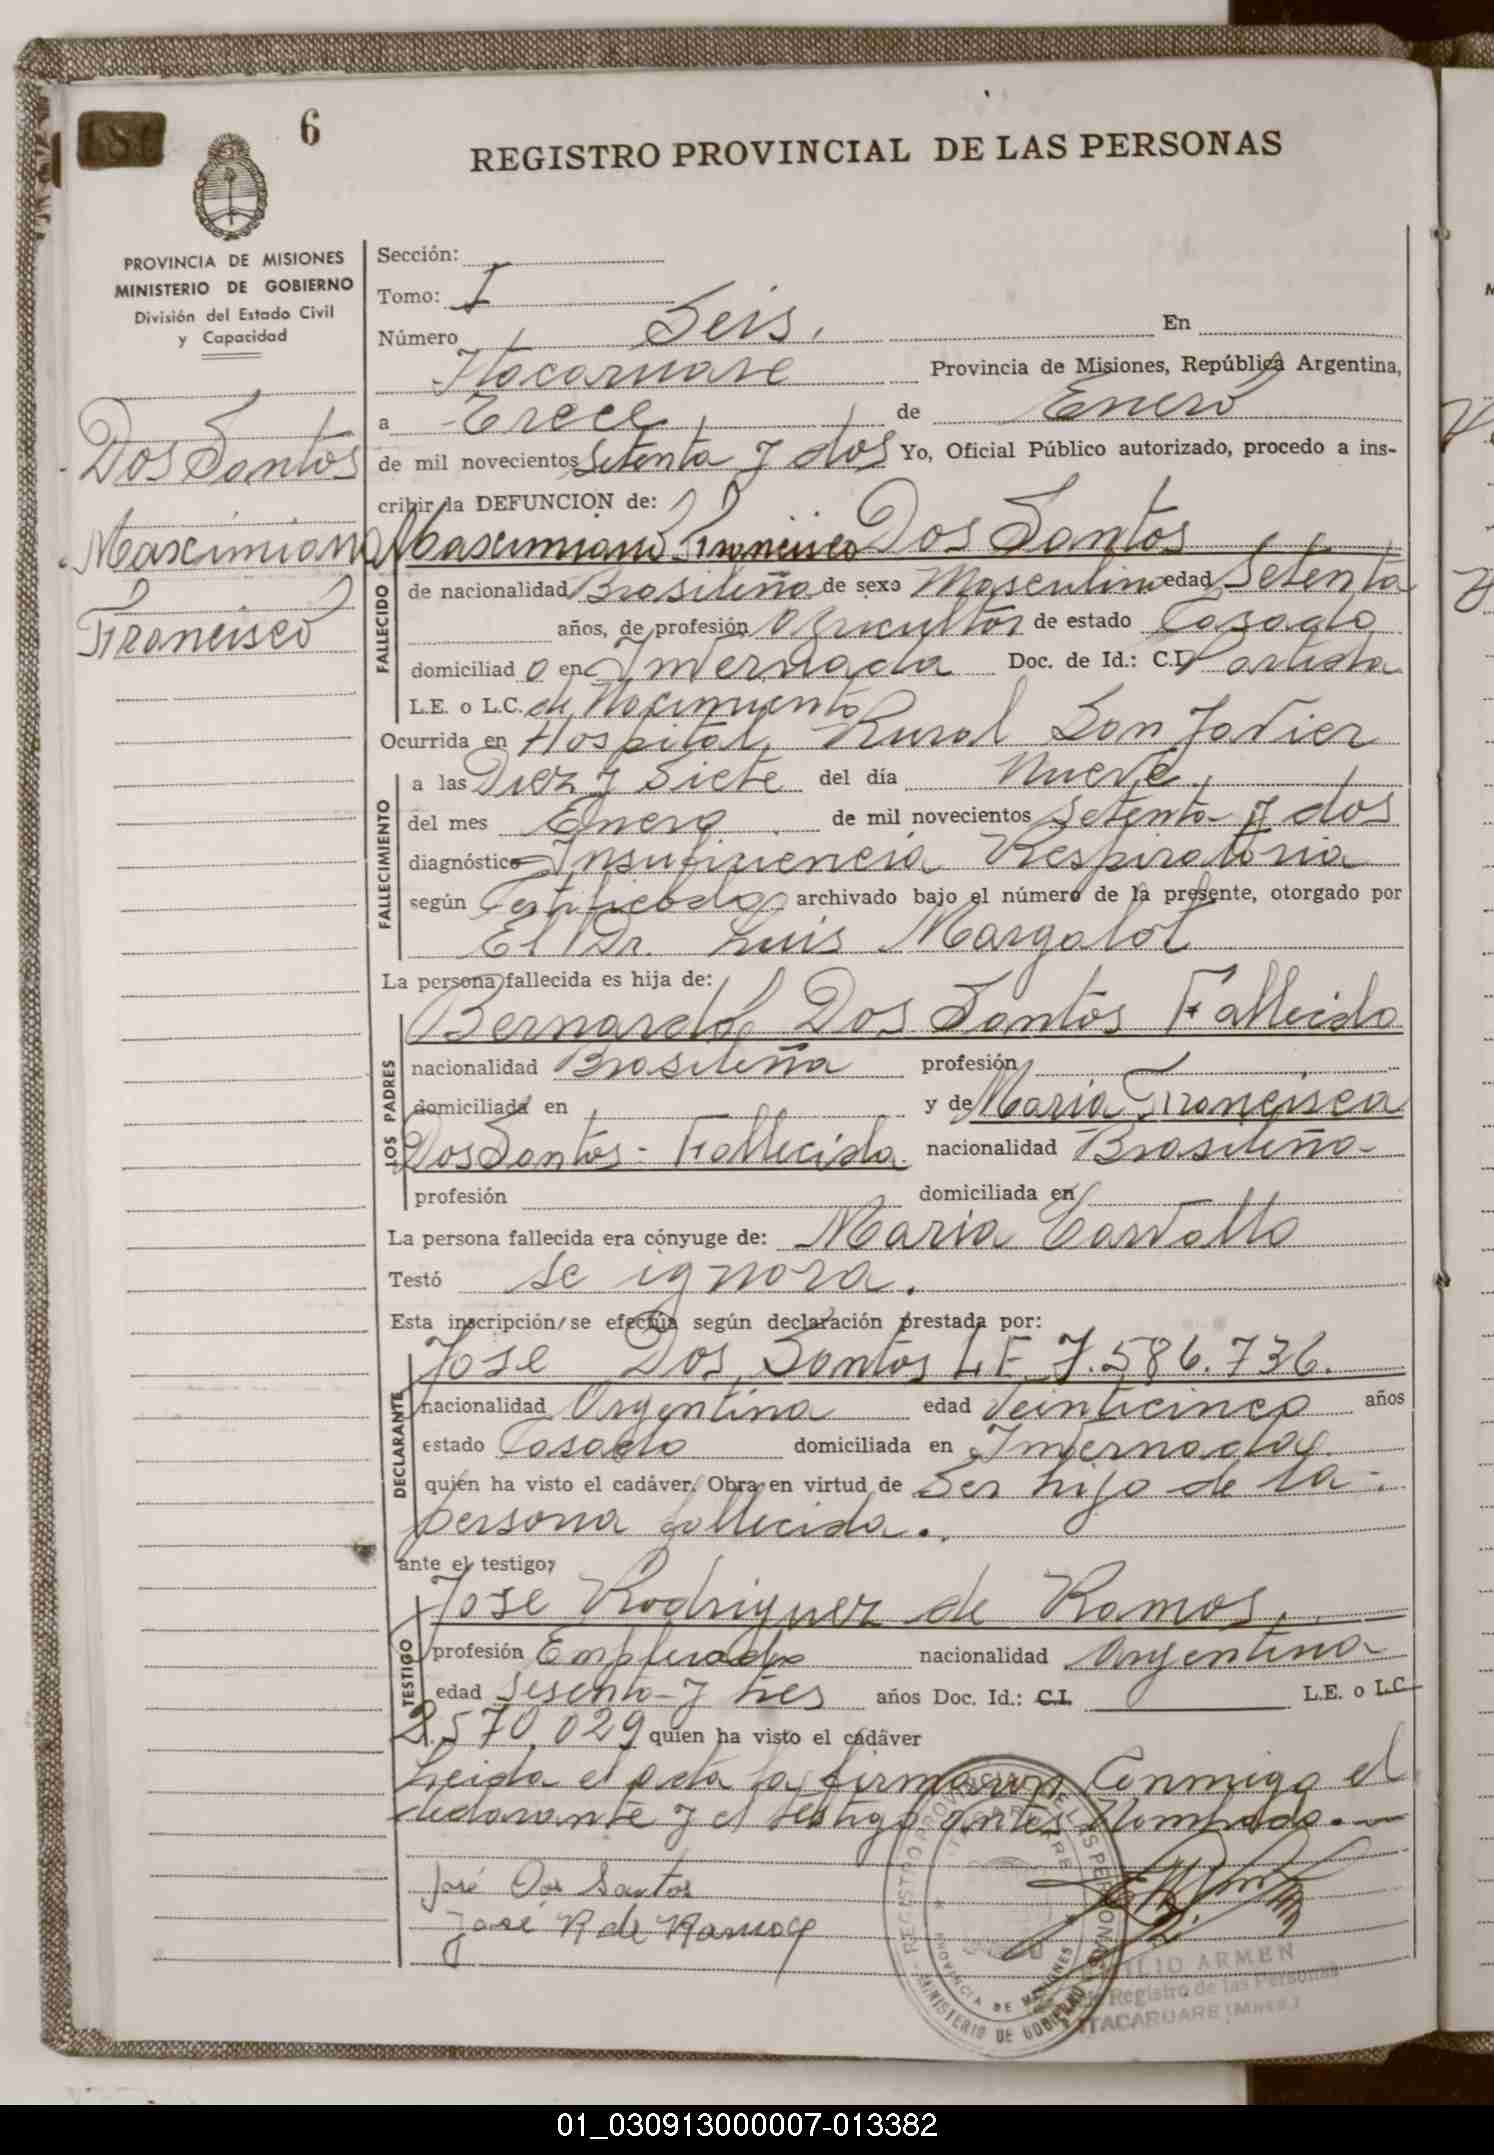 6
REGISTRO PROVINCIAL DE LAS PERSONAS
PROVINCIA DE MISIONES
MINISTERIO DE GOBIERNO
División del Estado Civil
y Capacidad
Dos Santos
Maximiano
Francisco
Sección:
Tomo: I
Número Seis. En
Itacaruare Provincia de Misiones, República Argentina,
a Trece de Enero
de mil novecientos Setenta y dos Yo, Oficial Público autorizado, procedo a ins-
cribir la DEFUNCION de:
Maximiano Francisco Dos Santos
FALLECIDO
de nacionalidad Brasileña de sexo Masculino edad Setenta
años, de profesión Agricultor de estado Casado
domiciliad o en Invernada Doc. de Id.: C.I. Partida
L.E. o L.C. de Nacimiento
Ocurrida en Hospital Rural San Javier
FALLECIMIENTO
a las Diez y Siete del día Nueve
del mes Enero de mil novecientos Setenta y dos
diagnóstico Insuficiencia Respiratoria
según Certificado archivado bajo el número de la presente, otorgado por
El Dr. Luis Margalot
La persona fallecida es hija de:
LOS PADRES
Bernardo Dos Santos Fallecido
nacionalidad Brasileña profesión
domiciliada en y de Maria Francisca
Dos Santos - Fallecida. nacionalidad Brasileña-
profesión domiciliada en
La persona fallecida era cónyuge de: Maria Carvallo
Testó se ignora.
Esta inscripción se efectúa según declaración prestada por:
DECLARANTE
Jose Dos Santos L.E. 7.586.736.
nacionalidad Argentina edad Veinticinco años
estado Casado domiciliada en Invernada
quién ha visto el cadáver. Obra en virtud de Ser hijo de la
persona fallecida.
ante el testigo:
TESTIGO
Jose Rodriguez de Ramos.
profesión Empleado nacionalidad Argentina
edad Sesenta y tres años Doc. Id.: C.I. L.E. o L.C.
2.570.029 quien ha visto el cadáver
Leida el acta la firmaron Conmigo el
declarante y el testigo antes Nombrado.
José Dos Santos
José R de Ramos
REGISTRO PROVINCIAL DE LAS PERSONAS
ITACARUARE
PROVINCIA DE MISIONES
MINISTERIO DE GOBIERNO
ILIO ARMEN
Registro de las Personas
ITACARUARE (Mnes.)
01_030913000007-013382